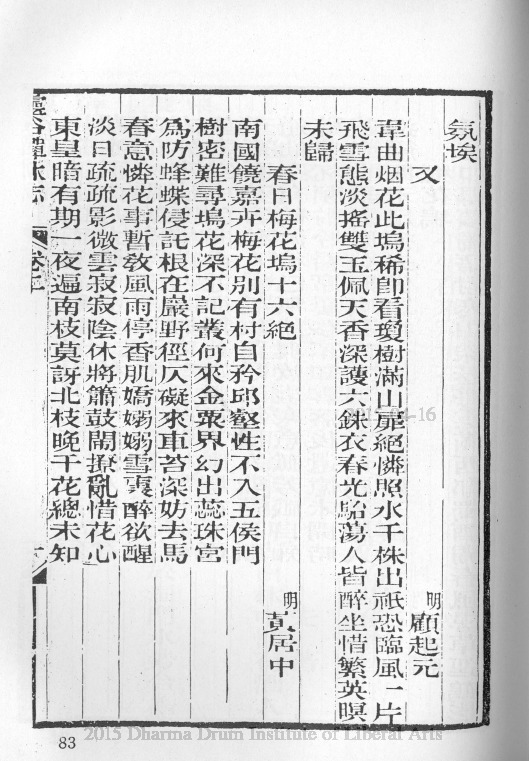 氛埃
又
明 顧起元
韋曲烟花此塢稀卽看瓊樹滿山扉絕憐照水千株出祇恐臨風一片
飛雪態淡搖雙玉佩天香深護六銖衣春光駘蕩人皆醉坐惜繁英暝
未歸
春日梅花塢十六絕
明 黃居中
南國饒嘉卉梅花別有村自矜邱壑性不入五侯門
樹密難尋塢花深不記叢何來金粟界幻出蕊珠宮
爲防蜂蝶侵託根在巖野徑仄礙來車苔深妨去馬
春意憐花事暫教風雨停香肌嬌嫋嫋雪裏醉欲醒
淡日疏疏影微雲寂寂陰休將簫鼓鬧撩亂惜花心
東皇暗有期一夜遍南枝莫訝北枝晚千花總未知
靈谷禪林志
卷十
83
2015 Dharma Drum Institute of Liberal Arts